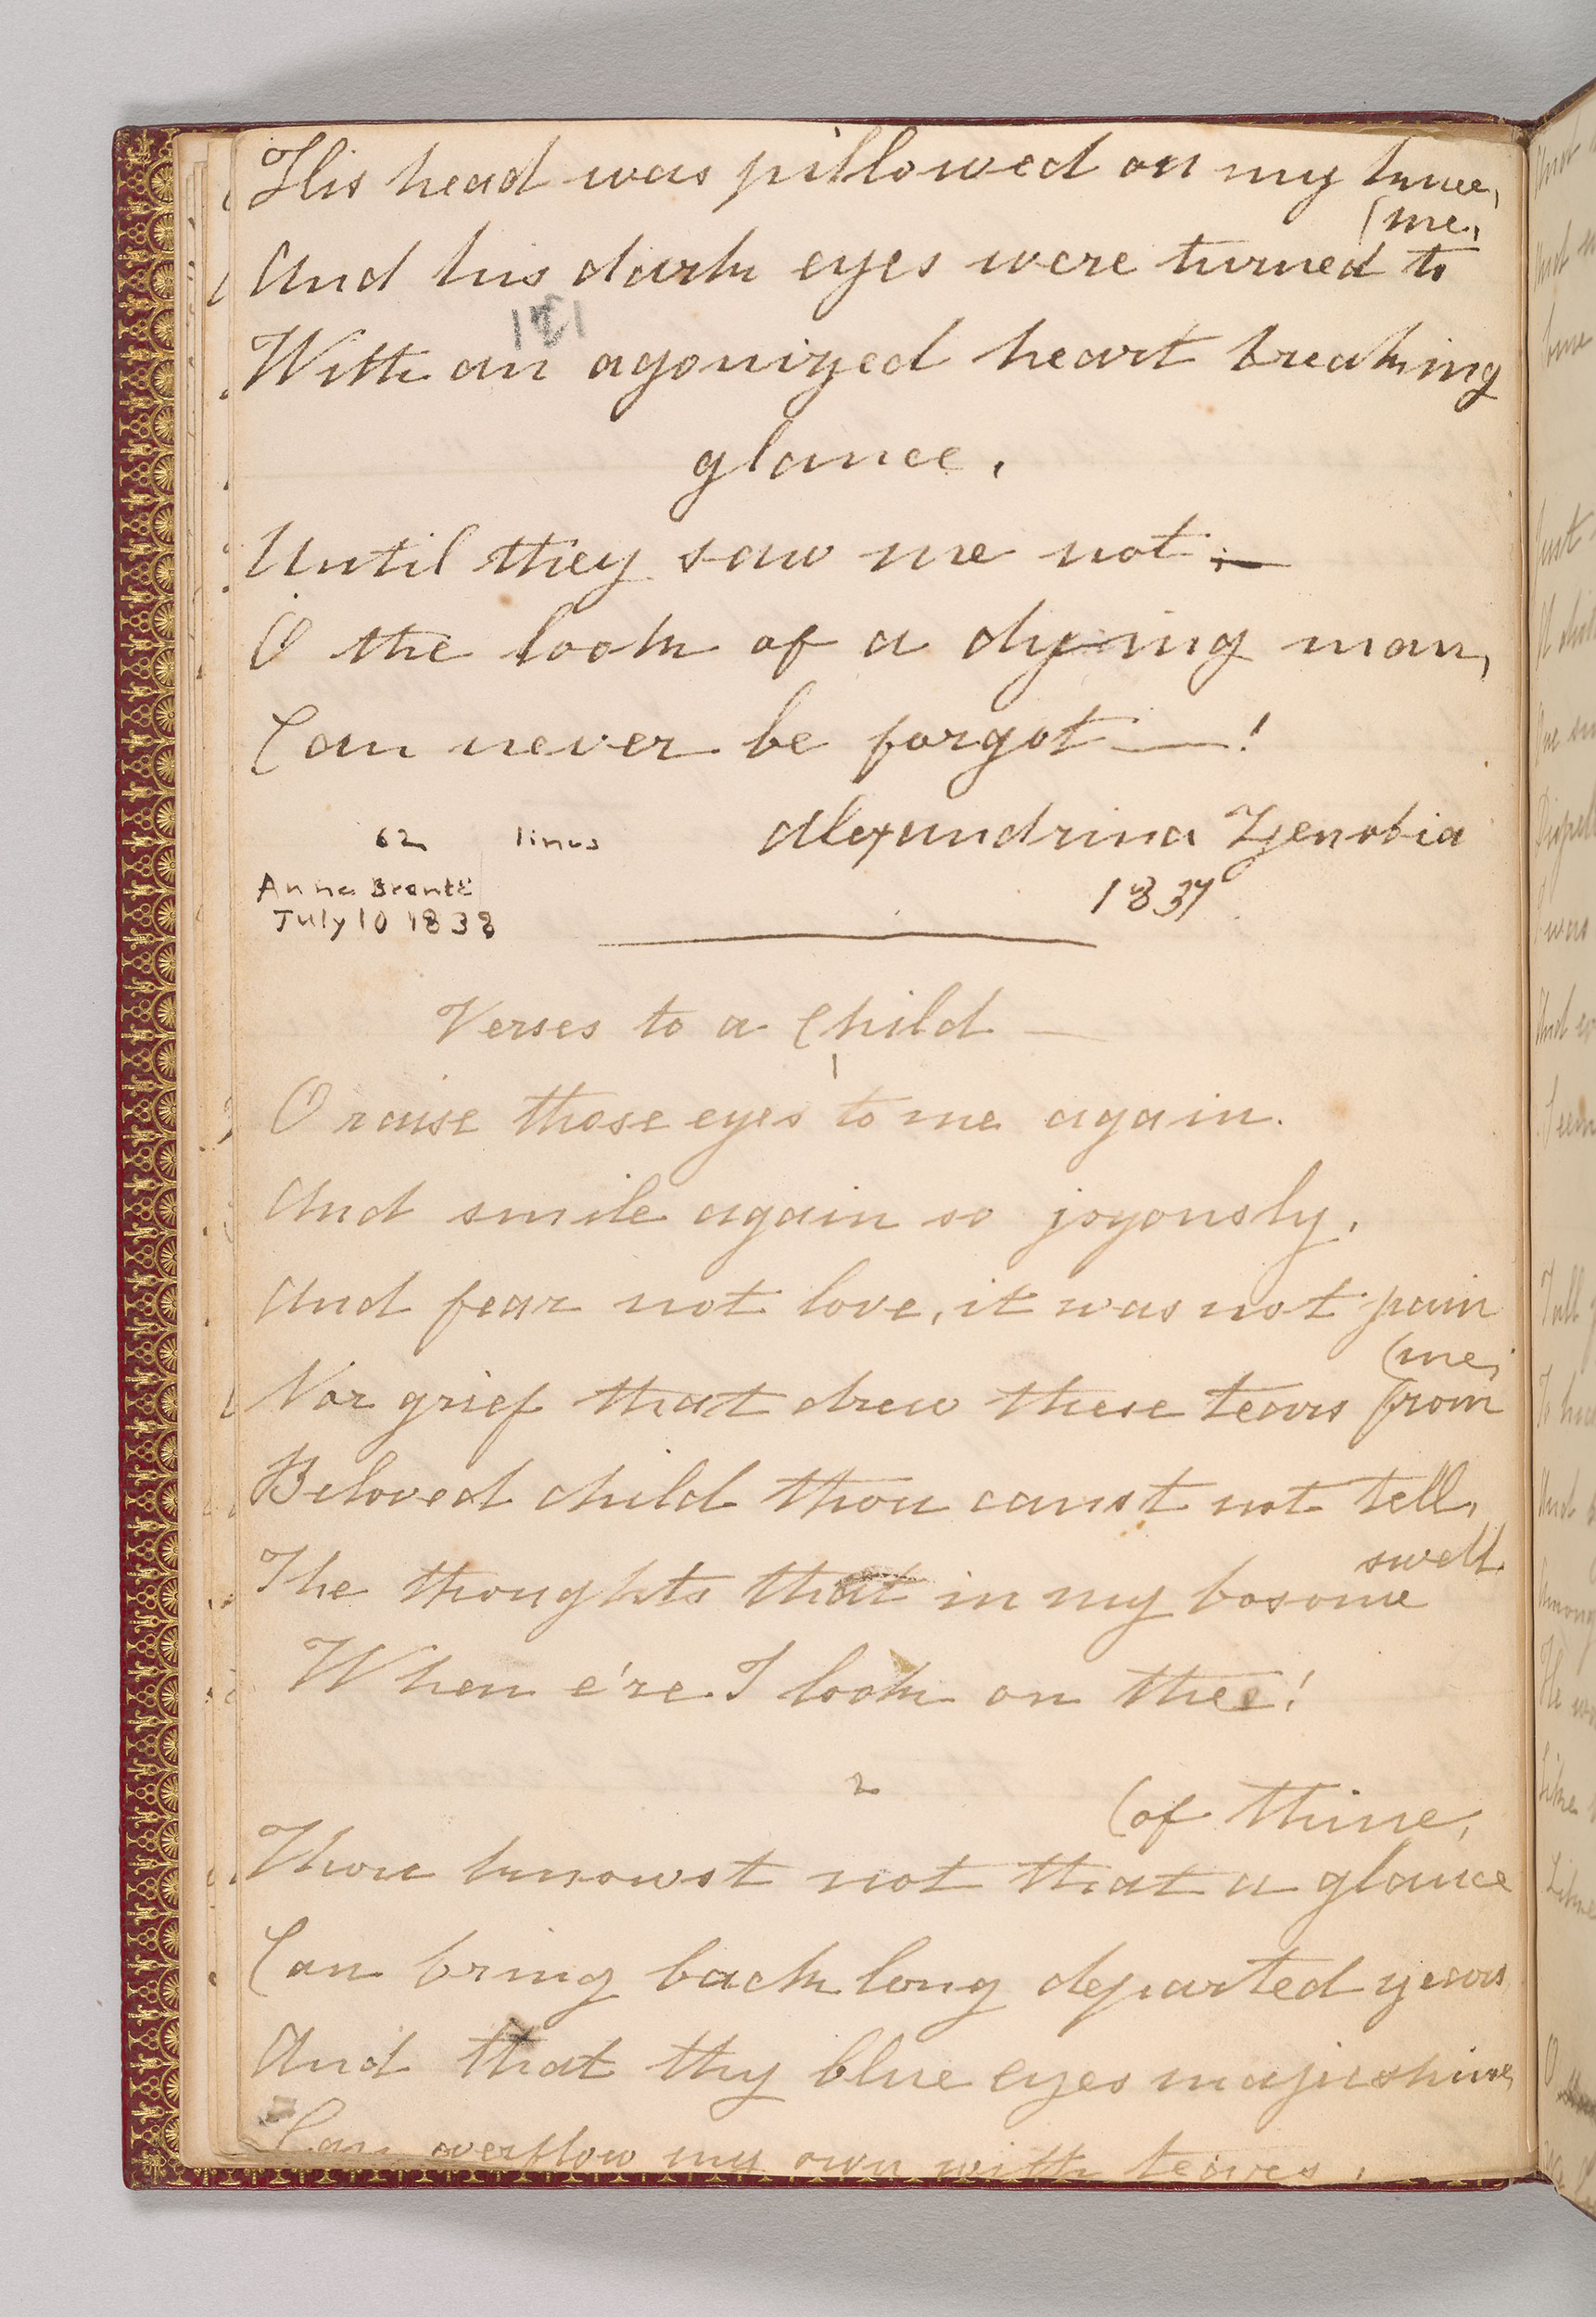 His head was pillowed on my knee,
(me,
And his dark eyes were turned to
With an agonized heart breaking
glance,
Until they saw me not;—
O the look of a dying man,
Can never be forgot—!
62 lines
Alexandrina Zenobia
Anne Brontë
1837
July 10 1838
Verses to a Child—
1
O raise those eyes to me again.
And smile again so joyously,
And fear not love, it was not pain
(me,
Nor grief that drew these tears from
Beloved child thou canst not tell,
swell
The thoughts that in my bosome
When e're I look on thee!
2
(of thine,
Thou knowst not that a glance
Can bring back long departed years
And that thy blue eyes majic shine,
Can overflow my own with teares,